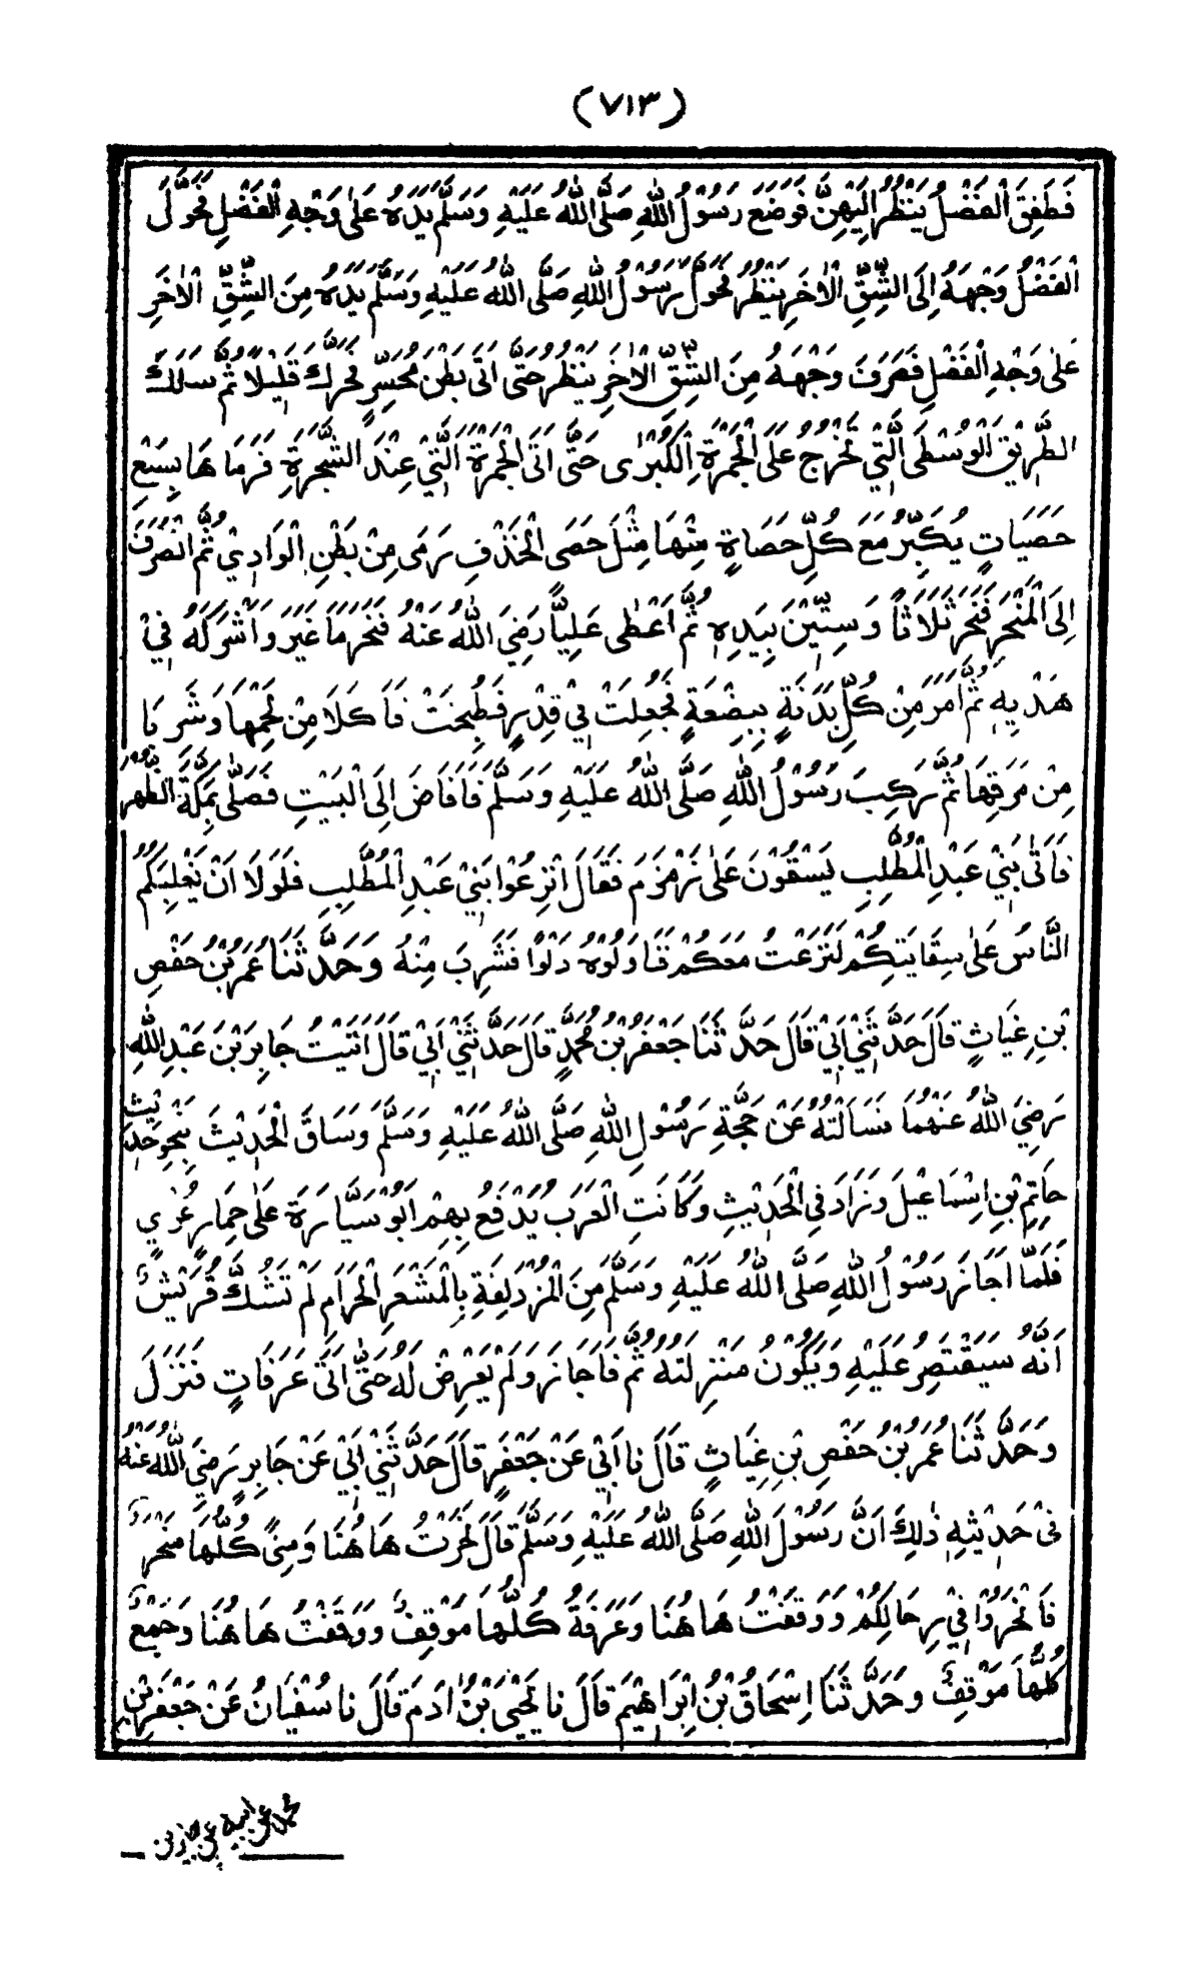 (٧١٣)
فَطَفِقَ الْفَضْلُ يَنْظُرُ اِلَيْهِنَّ فَوَضَعَ رَسُوْلُ اللهِ صَلَّى اللهُ عَلَيْهِ وَسَلَّمَ يَدَهُ عَلٰى وَجْهِ الْفَضْلِ فَحَوَّلَ
الْفَضْلُ وَجْهَهُ اِلَى الشِّقِّ الْاٰخَرِ يَنْظُرُ فَحَوَّلَ رَسُوْلُ اللهِ صَلَّى اللهُ عَلَيْهِ وَسَلَّمَ يَدَهُ مِنَ الشِّقِّ الْاٰخَرِ
عَلٰى وَجْهِ الْفَضْلِ فَصَرَفَ وَجْهَهُ مِنَ الشِّقِّ الْاٰخَرِ يَنْظُرُ حَتّٰى اَتٰى بَطْنَ مُحَسِّرٍ فَحَرَّكَ قَلِيْلًا ثُمَّ سَلَكَ
الطَّرِيْقَ الْوُسْطَى الَّتِيْ تَخْرُجُ عَلَى الْجَمْرَةِ الْكُبْرٰى حَتّٰى اَتَى الْجَمْرَةَ الَّتِيْ عِنْدَ الشَّجَرَةِ فَرَمَاهَا بِسَبْعِ
حَصَيَاتٍ يُكَبِّرُ مَعَ كُلِّ حَصَاةٍ مِنْهَا مِثْلَ حَصَى الْخَذْفِ رَمٰى مِنْ بَطْنِ الْوَادِيْ ثُمَّ انْصَرَفَ
اِلَى الْمَنْحَرِ فَنَحَرَ ثَلَاثًا وَسِتِّيْنَ بِيَدِهٖ ثُمَّ اَعْطٰى عَلِيًّا رَضِيَ اللهُ عَنْهُ فَنَحَرَ مَا غَبَرَ وَاَشْرَكَهُ فِيْ
هَدْيِهٖ ثُمَّ اَمَرَ مِنْ كُلِّ بَدَنَةٍ بِبِضْعَةٍ فَجُعِلَتْ فِيْ قِدْرٍ فَطُبِخَتْ فَاَكَلَا مِنْ لَحْمِهَا وَشَرِبَا
مِنْ مَرَقِهَا ثُمَّ رَكِبَ رَسُوْلُ اللهِ صَلَّى اللهُ عَلَيْهِ وَسَلَّمَ فَاَفَاضَ اِلَى الْبَيْتِ فَصَلّٰى بِمَكَّةَ الظُّهْرَ
فَاَتٰى بَنِيْ عَبْدِ الْمُطَّلِبِ يَسْقُوْنَ عَلٰى زَمْزَمَ فَقَالَ انْزِعُوْا بَنِيْ عَبْدِ الْمُطَّلِبِ فَلَوْلَا اَنْ يَغْلِبَكُمُ
النَّاسُ عَلٰى سِقَايَتِكُمْ لَنَزَعْتُ مَعَكُمْ فَنَاوَلُوْهُ دَلْوًا فَشَرِبَ مِنْهُ وَحَدَّثَنَا عُمَرُ بْنُ حَفْصِ
بْنِ غِيَاثٍ قَالَ حَدَّثَنِيْ اَبِيْ قَالَ حَدَّثَنَا جَعْفَرُ بْنُ مُحَمَّدٍ قَالَ حَدَّثَنِيْ اَبِيْ قَالَ اَتَيْتُ جَابِرَ بْنَ عَبْدِ اللهِ
رَضِيَ اللهُ عَنْهُمَا فَسَاَلْتُهُ عَنْ حَجَّةِ رَسُوْلِ اللهِ صَلَّى اللهُ عَلَيْهِ وَسَلَّمَ وَسَاقَ الْحَدِيْثَ بِنَحْوِ حَدِيْثِ
حَاتِمِ بْنِ اِسْمَاعِيْلَ وَزَادَ فِي الْحَدِيْثِ وَكَانَتِ الْعَرَبُ يَدْفَعُ بِهِمْ اَبُوْ سَيَّارَةَ عَلٰى حِمَارٍ عُرْيٍ
فَلَمَّا اَجَازَ رَسُوْلُ اللهِ صَلَّى اللهُ عَلَيْهِ وَسَلَّمَ مِنَ الْمُزْدَلِفَةِ بِالْمَشْعَرِ الْحَرَامِ لَمْ تَشُكَّ قُرَيْشٌ
اَنَّهُ سَيَقْتَصِرُ عَلَيْهِ وَيَكُوْنُ مَنْزِلَتُهُ ثَمَّ فَاَجَازَ وَلَمْ يَعْرِضْ لَهُ حَتّٰى اَتٰى عَرَفَاتٍ فَنَزَلَ
وَحَدَّثَنَا عُمَرُ بْنُ حَفْصِ بْنِ غِيَاثٍ قَالَ نا اَبِيْ عَنْ جَعْفَرٍ قَالَ حَدَّثَنِيْ اَبِيْ عَنْ جَابِرٍ رَضِيَ اللهُ عَنْهُ
فِيْ حَدِيْثِهٖ ذٰلِكَ اَنَّ رَسُوْلَ اللهِ صَلَّى اللهُ عَلَيْهِ وَسَلَّمَ قَالَ نَحَرْتُ هَاهُنَا وَمِنًى كُلُّهَا مَنْحَرٌ
فَانْحَرُوْا فِيْ رِحَالِكُمْ وَوَقَفْتُ هَاهُنَا وَعَرَفَةُ كُلُّهَا مَوْقِفٌ وَوَقَفْتُ هَاهُنَا وَجَمْعٌ
كُلُّهَا مَوْقِفٌ وَحَدَّثَنَا اِسْحَاقُ بْنُ اِبْرَاهِيْمَ قَالَ نا يَحْيَى بْنُ اٰدَمَ قَالَ نا سُفْيَانُ عَنْ جَعْفَرِ بْنِ